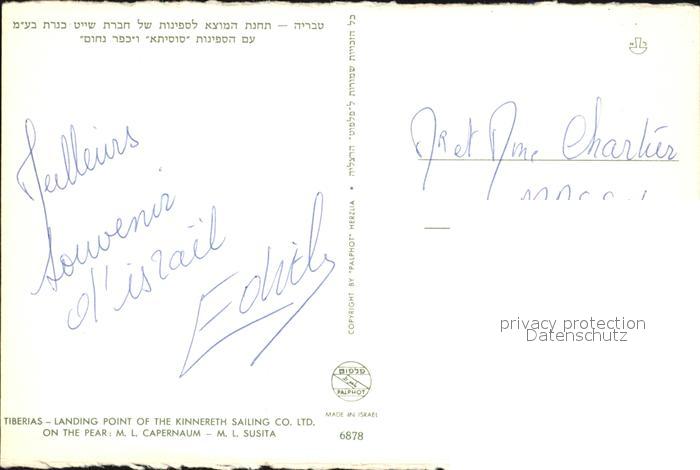 טבריה – תחנת המוצא לספינות של חברת שייט כנרת בע״מ
עם הספינות ״סוסיתא״ ו״כפר נחום״
Meilleurs
souvenir
d'israël
Edith
כל הזכויות שמורות ל״פלפוט״ הרצליה • COPYRIGHT BY "PALPHOT" HERZLIA
Mr et Mme Chartier
privacy protection
Datenschutz
פלפוט
PALPHOT
MADE IN ISRAEL
6878
TIBERIAS – LANDING POINT OF THE KINNERETH SAILING CO. LTD.
ON THE PEAR: M. L. CAPERNAUM – M. L. SUSITA